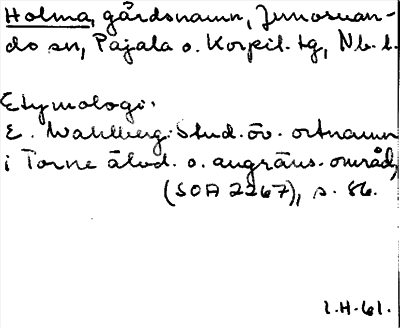 Holma, gårdsnamn, Junosuan-
do sn, Pajala o. Korpil. tg, Nb. l.
Etymologi.
E. Wahlberg: Stud. öv. ortnamn
i Torne älvd. o. angräns. områd,
(SOA 2267), s. 86.
1.H.61.